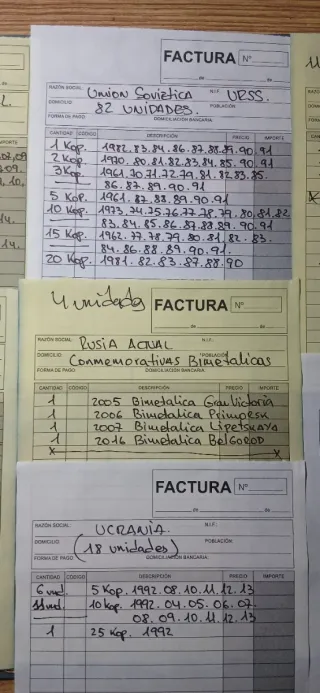 FACTURA Nº
de de
RAZÓN SOCIAL: Union Sovietica N.I.F.: URSS.
DOMICILIO: 82 UNIDADES. POBLACIÓN:
FORMA DE PAGO: DOMICILIACIÓN BANCARIA:
CANTIDAD CÓDIGO DESCRIPCIÓN PRECIO IMPORTE
1 Kop. 1982.83.84.86.87.88.89.90.91
2 Kop. 1970.80.81.82.83.84.85.90.91
3 Kop. 1961.70.71.72.79.81.82.83.85.
86.87.89.90.91
5 Kop. 1961.87.88.89.90.91
10 Kop. 1973.74.75.76.77.78.79.80.81.82
83.84.85.86.87.88.89.90.91
15 Kop. 1962.77.78.79.80.81.82.83.
84.86.88.89.90.91.
20 Kop. 1981.82.83.87.88.90
4 unidades FACTURA Nº
de de
RAZÓN SOCIAL: RUSIA ACTUAL N.I.F.:
DOMICILIO: Conmemorativas Bimetalicas POBLACIÓN:
FORMA DE PAGO: DOMICILIACIÓN BANCARIA:
CANTIDAD CÓDIGO DESCRIPCIÓN PRECIO IMPORTE
1 2005 Bimetalica Gran Victoria
1 2006 Bimetalica Primorsk
1 2007 Bimetalica Lipetskaya
1 2016 Bimetalica BELGOROD
X X
FACTURA Nº
de de
RAZÓN SOCIAL: UCRANIA. N.I.F.:
DOMICILIO: (18 unidades) POBLACIÓN:
FORMA DE PAGO: DOMICILIACIÓN BANCARIA:
CANTIDAD CÓDIGO DESCRIPCIÓN PRECIO IMPORTE
6 und. 5 Kop. 1992.08.10.11.12.13
11 und. 10 Kop. 1992.04.05.06.07.
08.09.10.11.12.13
1 25 Kop. 1992